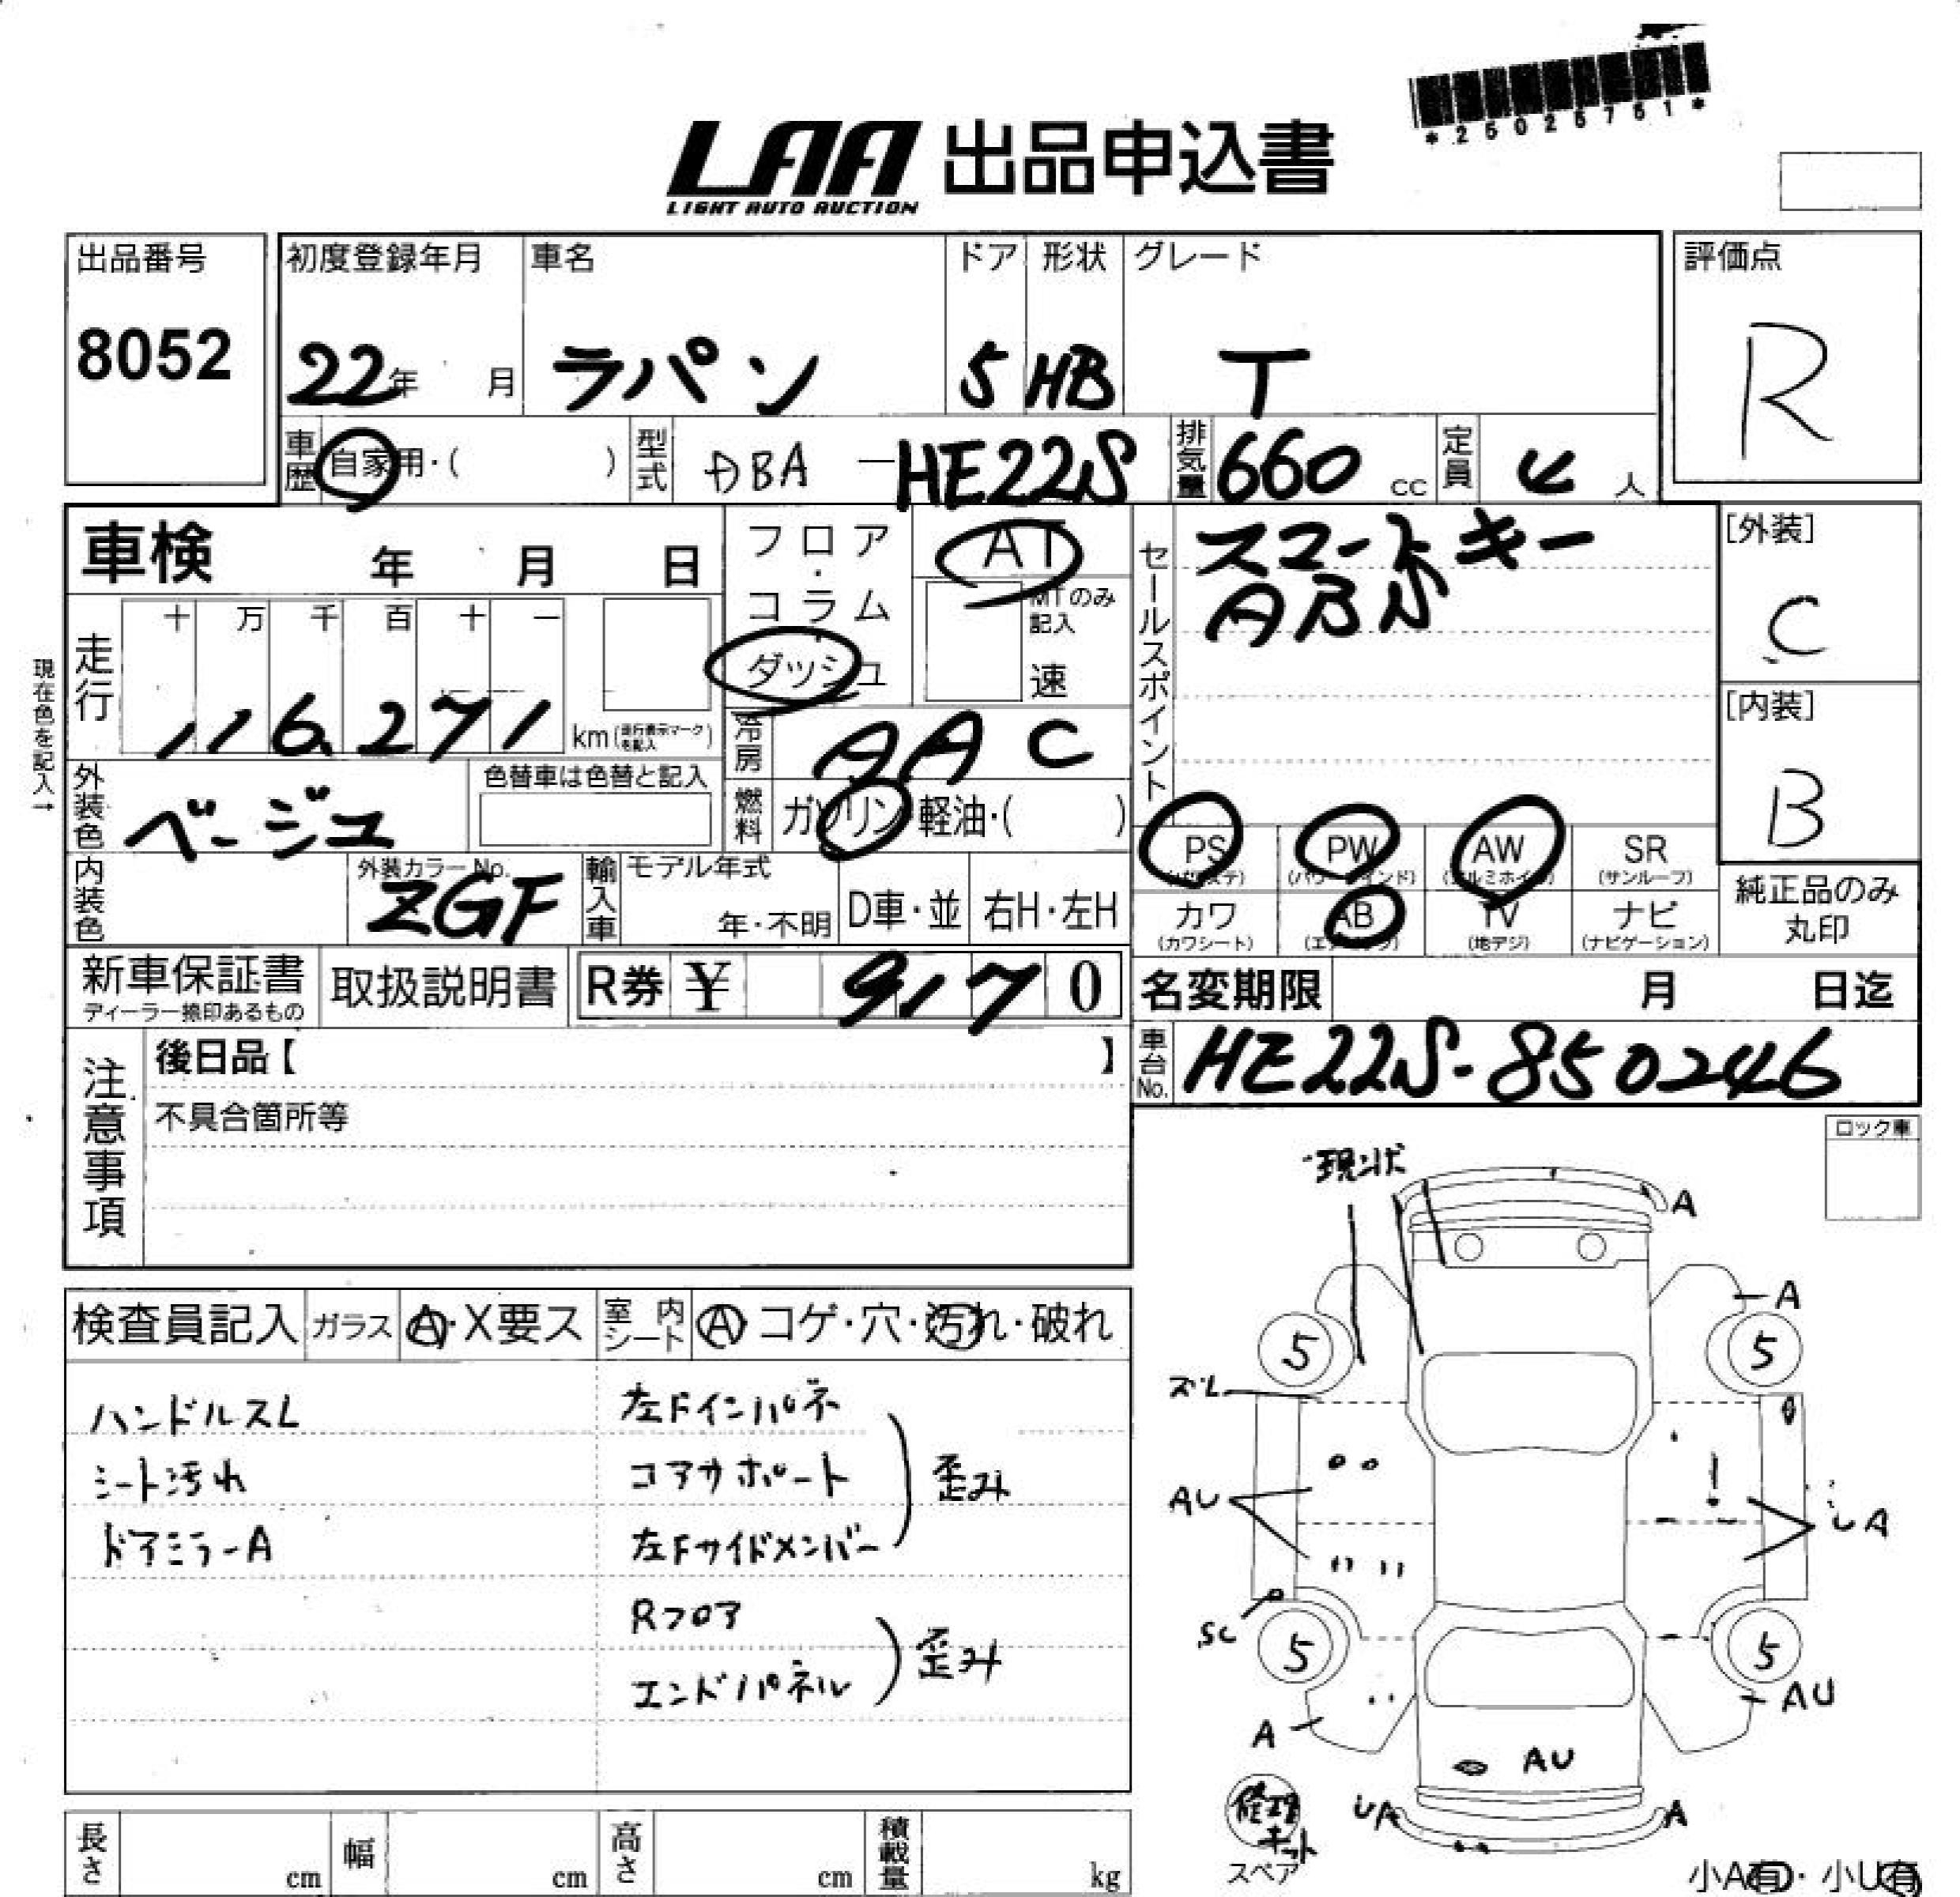 *25025751*
LAA 出品申込書
LIGHT AUTO AUCTION
出品番号
8052
初度登録年月
22年 月
車名
ラパン
ドア
5
形状
HB
グレード
T
評価点
R
車歴
自家用・( )
型式
DBA-HE22S
排気量
660 cc
定員
4 人
車検 年 月 日
フロア・コラム・ダッシュ
AT
MTのみ記入
速
セールスポイント
スマートキー
ABS
[外装]
C
[内装]
B
現在色を記入→
走行
十 万 千 百 十 一
116,271
km(走行表示マークを記入)
冷房
AAC
外装色
ベージュ
色替車は色替と記入
燃料
ガソリン・軽油・( )
内装色
外装カラーNo.
ZGF
輸入車
モデル年式
年・不明
D車・並
右H・左H
PS
(パワステ)
PW
(パワーウインド)
AW
(アルミホイル)
SR
(サンルーフ)
カワ
(カワシート)
AB
(エアバッグ)
TV
(地デジ)
ナビ
(ナビゲーション)
純正品のみ
丸印
新車保証書
ディーラー捺印あるもの
取扱説明書
R券 ¥ 9170
名変期限 月 日迄
車台No.
HE22S-850246
注意事項
後日品【 】
不具合箇所等
ロック車
現状
A
A
5
5
ズレ
AU
UA
SC
5
5
AU
A
AU
UA
A
修理キット
スペア
小A有・小U有
検査員記入
ガラス
A・X要ス
室内シート
A・コゲ・穴・汚れ・破れ
ハンドルスレ
シート汚れ
ドアミラーA
左Fインパネ
コアサポート
左Fサイドメンバー
歪み
Rフロア
エンドパネル
歪み
長さ cm
幅 cm
高さ cm
積載量 kg